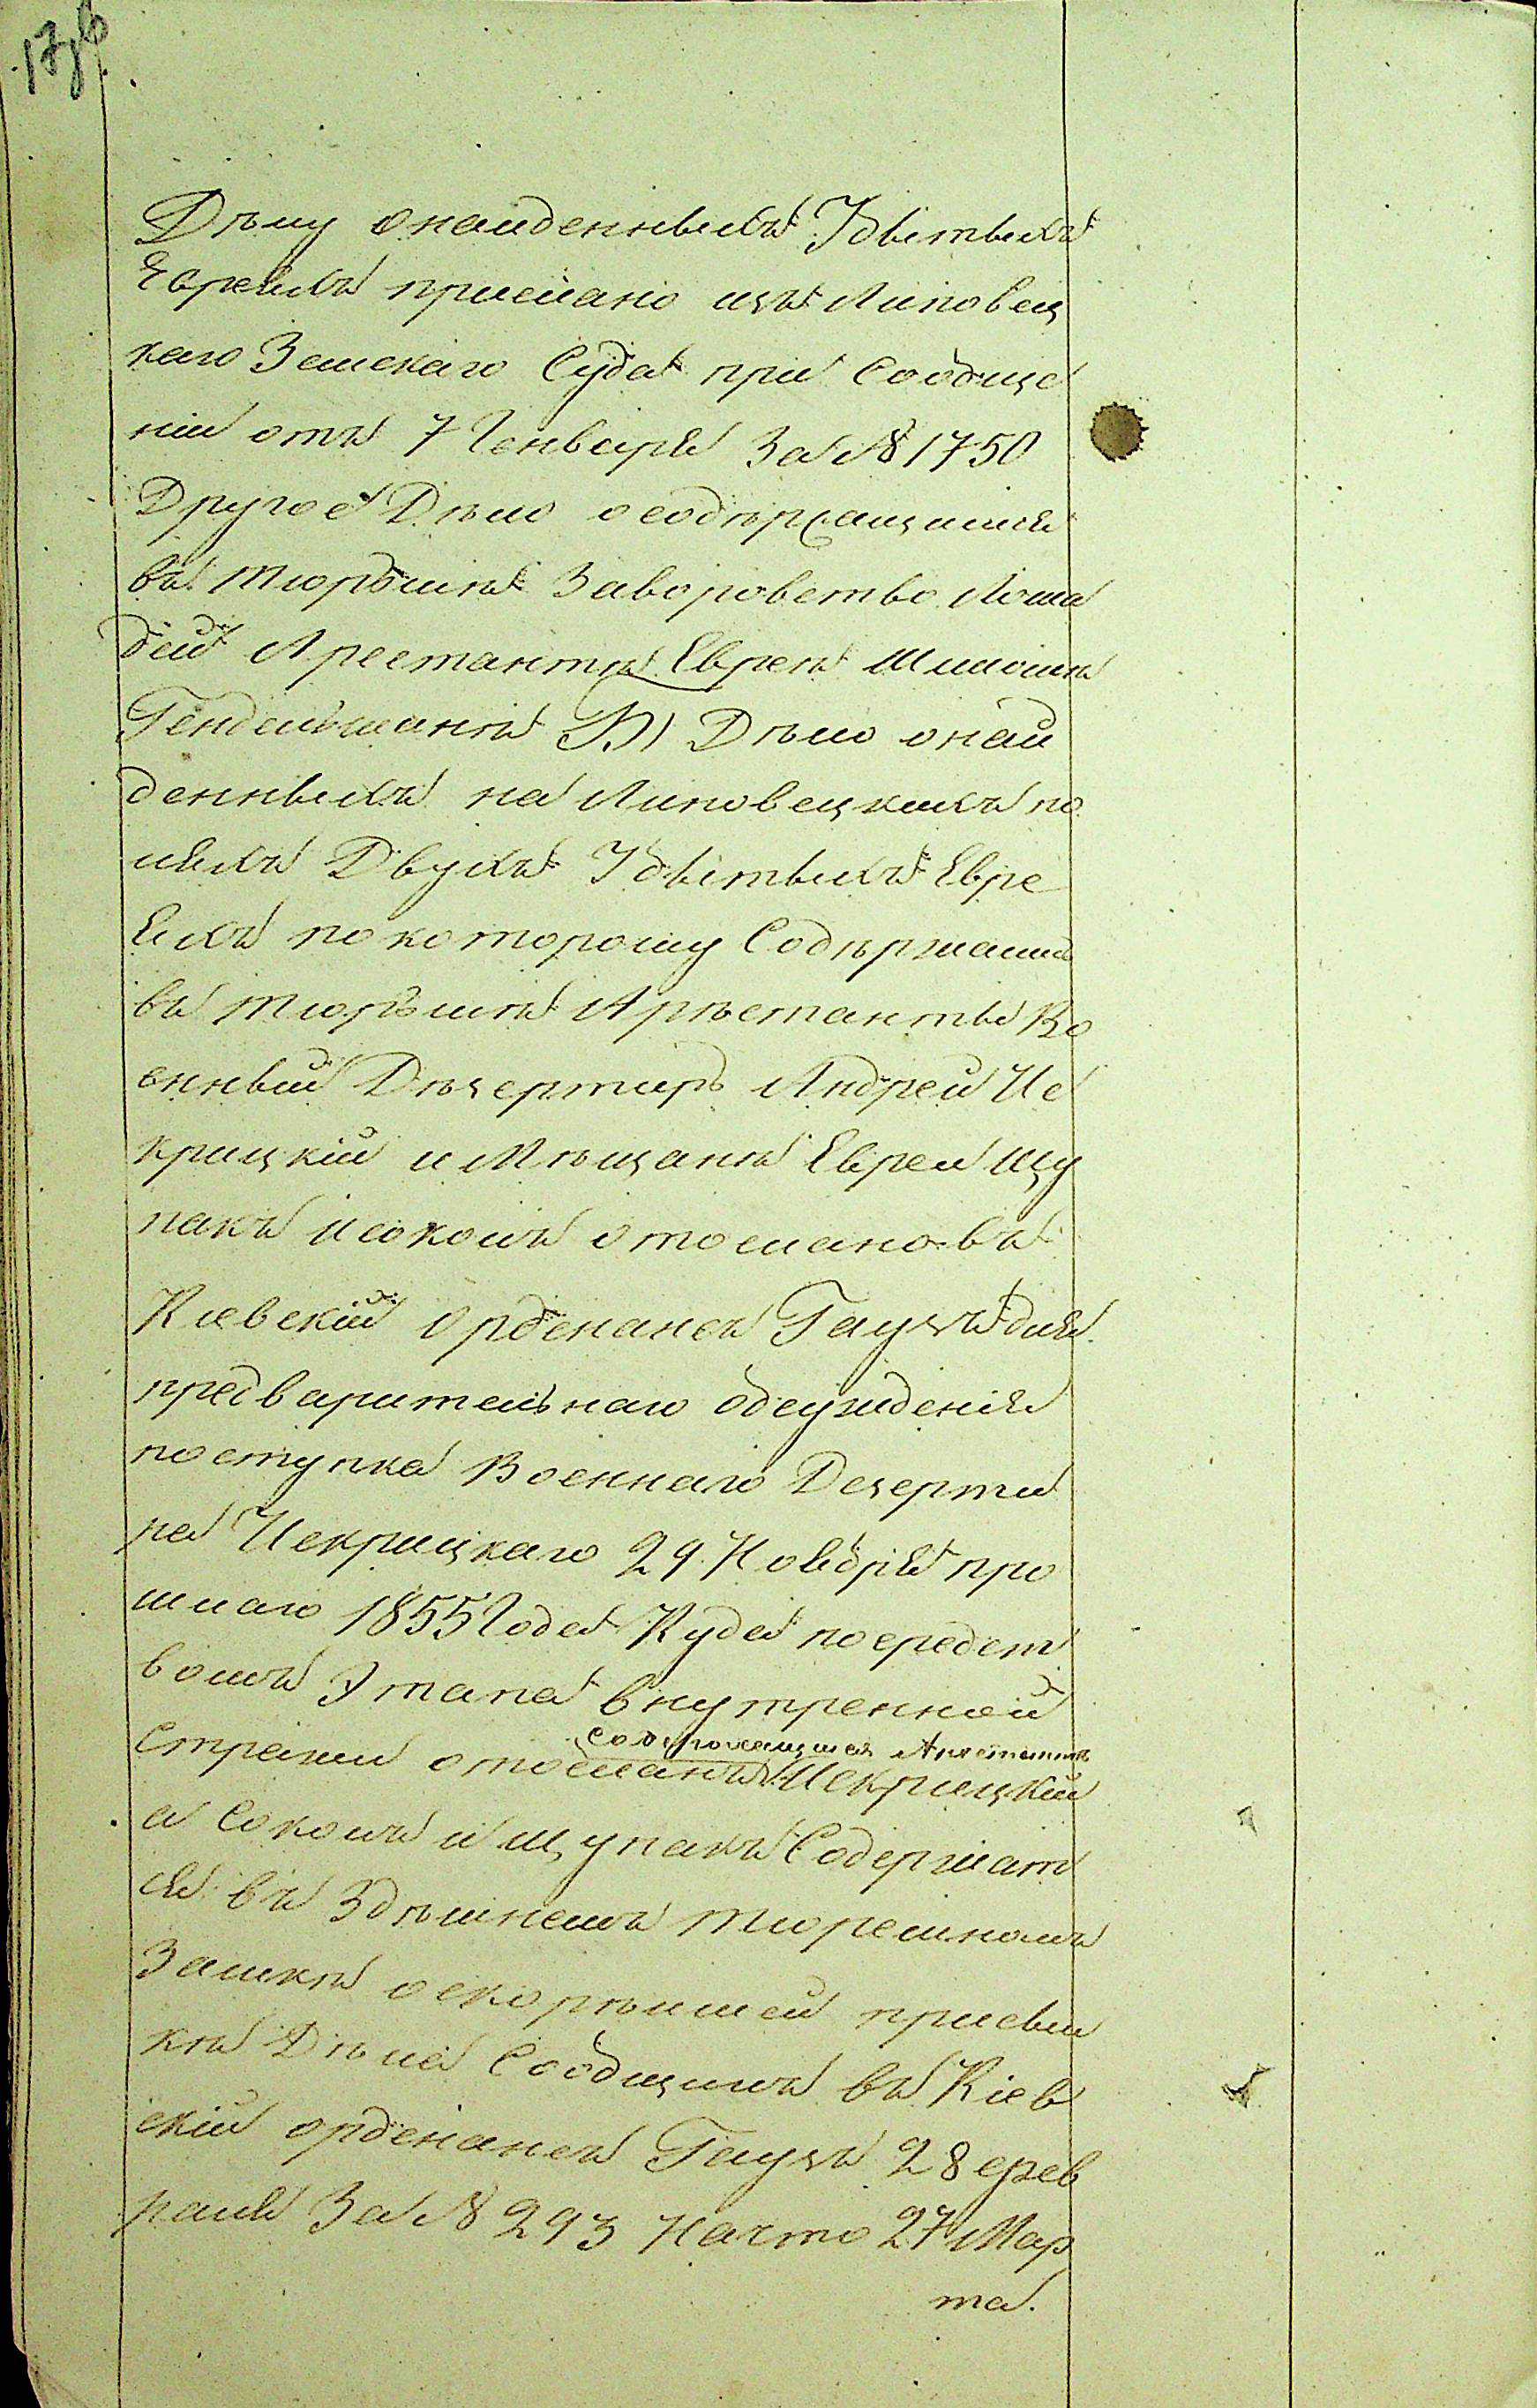 Дѣлу онайденныхъ Убитыхъ
Евреяхъ прислано изъ Липовец
каго Земскаго Суда при Сообще
ніи отъ 7 Генваря За № 1750
Другое Дѣло осодѣржащимся
въ тюрьмѣ Заворовство лоша
дей Арестантѣ Евреѣ Шлиомѣ
Гендельманѣ В) Дѣло онай
денныхъ на Липовецкихъ по
ляхъ Двухъ Убитыхъ Евре
яхъ покоторому Содѣржащ
въ тюрьмѣ Арѣстанты Во
енный Дѣзертиръ Андрей Не
крицкій и Мѣщанѣ Евреи Щу
пакъ исоколъ отослано въ
Кіевскій Орденансъ Гаузъ для
предварительнаго обсужденія
поступка Военнаго Дезерти
ра Некрицкаго 29 Ноября про
шлаго 1855 Года Куда посредст
вомъ Этапа внутренной
содержащійся Арѣстантъ
Стражи отосланъ Некрицкій
а Соколъ и щупакъ Содержат
ся въ Здѣшнемъ тюремномъ
Замкѣ оскорѣйшей присыл
кѣ Дѣла Сообщилъ въ Кіев
скій орденансъ Гаузъ 28 фев
раля За № 293 Начто 27 Мар
та.